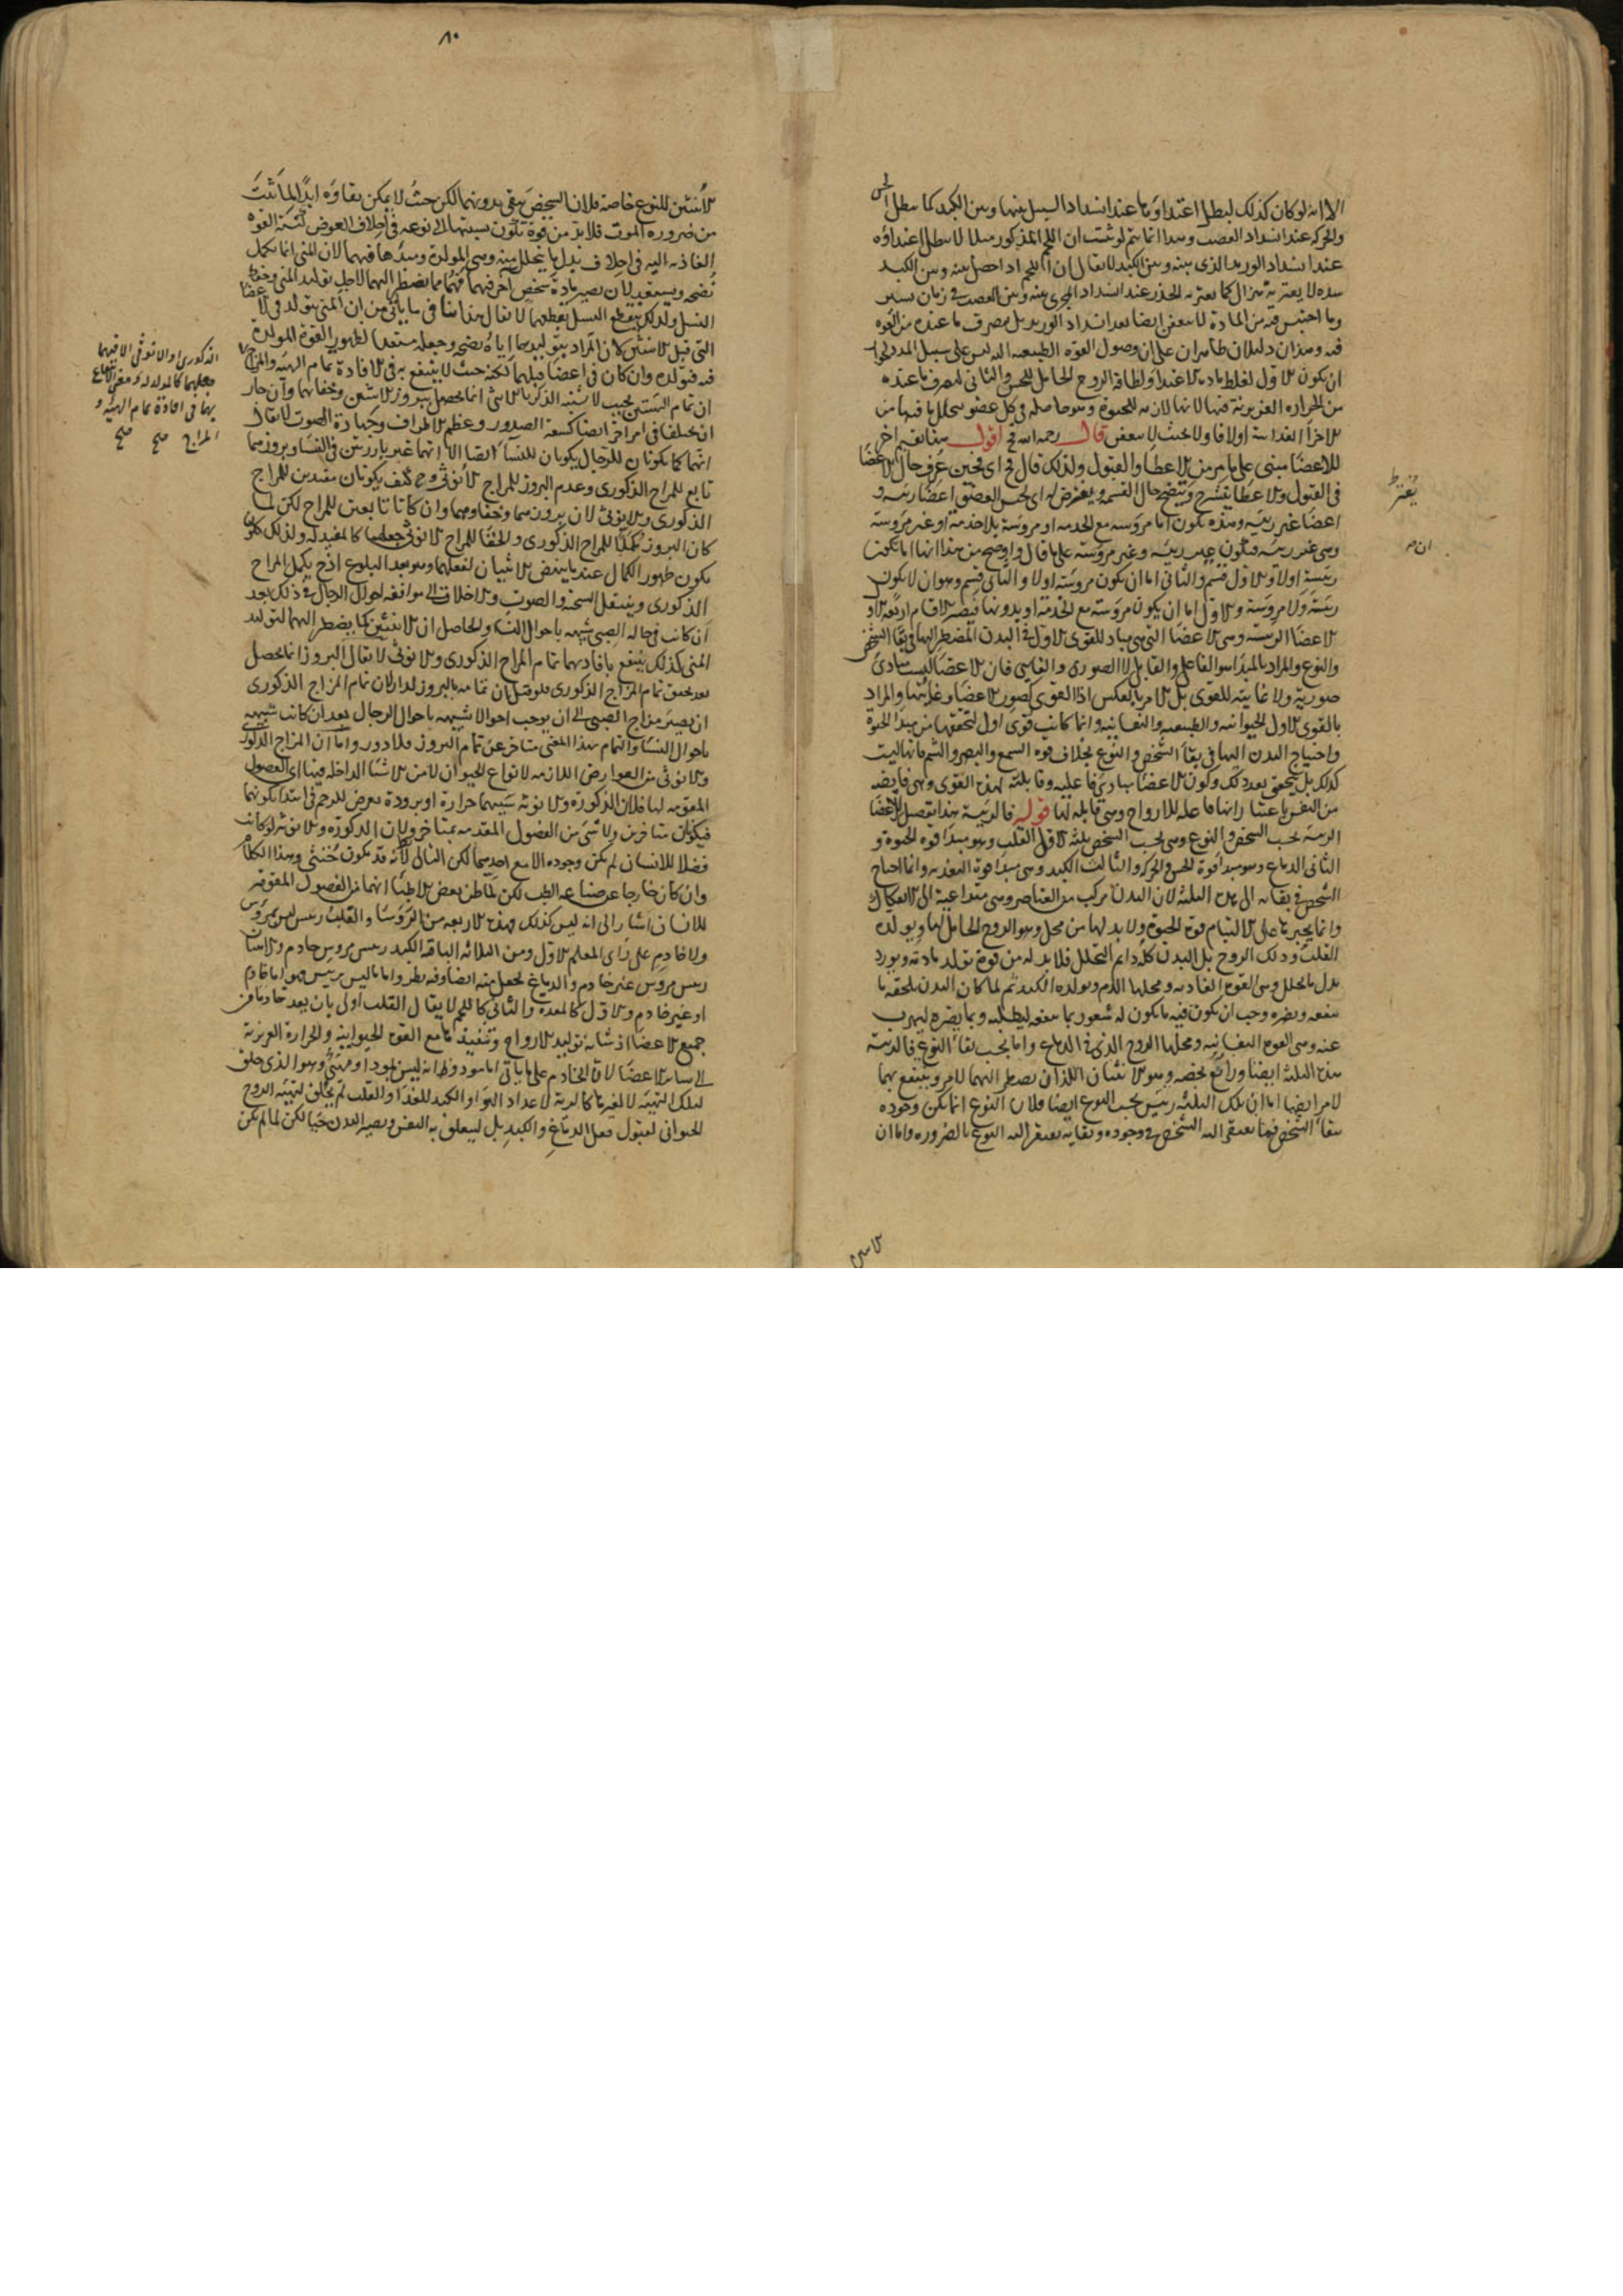 الا انه لو كان كذلك لبطل اغتذاؤها عند انسداد السبل بينها وبين الكبد كما يبطل الحس
والحركة عند انسداد العصب وهذا انما يتم لو ثبت ان اللحم المذكور مثلا لا يبطل اغتذاؤه
عند انسداد الوريد الذى بينه وبين الكبد لا يقال ان اللحم اذا حصل بينه وبين الكبد
سده لا يعتريه هزال كما يعتريه الخدر عند انسداد المجرى بينه وبين العصب فى زمان يسير
وما احتبس فيه من المادة لا يتعفن ايضا بعد انسداد الوريد بل يتصرف ما عنده من القوه
فيه وهذان دليلان ظاهران على ان وصول القوه الطبيعيه اليه ليس على سبيل المدد لجواز
ان يكون الاول لغلظ مادة الاغتذا ولطافة الروح الحامل للحس والثانى لتصرف ما عنده
من الحراره الغريزية فيها لانها لازمه للحيوة وهو حاصله فى كل عضو
الاجزا الغذائية اولا فاولا بحيث لا يتعفن قال رحمه الله اقول هذا تقسيم اخر
للاعضا مبنى على ما مر من الاعطا والقبول ولذلك قال فح اى فحين عرف حال الاعضا
فى القبول والاعطا يتشرح ويتضح حال القسمه ويفترض له اى بحسب العضو اعضا رئيسه و
اعضا غير رئيسه وهذه تكون اما مرؤسه مع الخدمه او مرؤسة بلا خدمة او غير مرؤسة
وهى غير رئيسه فتكون غير رئيسه وغير مرؤسه على ما قال واوضح من هذا انها اما تكون
رئيسة اولا والاول قسم والثانى اما ان يكون مروسه اولا والثانى قسم وهو ان لا يكون
رئيسة ولا مروسة والاول اما ان يكون مروسه مع الخدمة او بدونها فيصير الاقسام اربعه الاول
الاعضا الرئيسه وهى الاعضا التى هى مباد للقوى الاول فى البدن المضطر اليها فى بقا الشخص
والنوع والمراد بالمبدا هو الفاعل والقابل لا الصورى والغايى فان الاعضا ليست مبادى
صورية ولا غايية للقوى بل الامر بالعكس اذا القوى كصور الاعضا وغاياتها والمراد
بالقوى الاول الحيوانيه والطبيعيه والنفسانيه وانما كانت قوى اول لتحققها من مبدا الحيوة
واحتياج البدن اليها فى بقا الشخص والنوع بخلاف قوه السمع والبصر والشم فانها ليست
كذلك بل يتحقق بعد ذلك وكون الاعضا مبادى فاعليه وقابلته لهذه القوى وهى فايضه
من النفس باعتبار انها فاعله للارواح وهى قابله لها قوله فالرئيسة هذا تفصيل للاعضا
الرئيسه بحسب الشخص والنوع وهى بحسب الشخص ثلثة الاول القلب وهو مبدا قوه الحيوة و
الثانى الدماغ وهو مبدا قوة الحس والحركة والثالث الكبد وهى مبدا قوة التغذيه وانما احتاج
الشخص فى بقايه الى هذه الثلثة لان البدن مركب من العناصر وهى متداعية الى الانفكاك
وانما يجبرها على الالتيام قوة الحيوة ولا بد لها من محل وهو الروح الحامل لها ويولده
القلب وذلك الروح بل البدن كله دائم التحلل فلا بد له من قوة تولد مادته وتورد
بدل ما يتحلل وهى القوه الغاذيه ومحلها الدم ويولده الكبد ثم لما كان البدن يلحقه ما
ينفعه ويضره وجب ان يكون فيه ما يكون له شعور بما ينفعه ليطلبه وبما يضره ليهرب
عنه وهى القوه النفسانيه ومحلها الروح الذى فى الدماغ واما بحسب بقا النوع فالرئيسة
هذه الثلثة ايضا ورابع يخصه وهو الانثيان اللذان يضطر اليهما لامر وينتفع بهما
لامر ايضا اما ان تلك الثلثه رئيس بحسب النوع ايضا فلان النوع انما يمكن وجوده
ببقا الشخص فما يفتقر اليه الشخص فى وجوده وبقايه يفتقر اليه النوع بالضروره واما ان
يفترض
ان م
٨٠
الانثيين للنوع خاصة فلان الشخص يبقى بدونهما لكن حيث لا يمكن بقاؤه ابدا لما ثبت
من ضروره الموت فلا بد من قوة تكون نسبتها الى نوعه فى اخلاف العوض كنسبة القوه
الغاذيه اليه فى اخلاف بدل ما يتحلل منه وهى المولدة ومبدؤها فيهما لان المنى انما يكمل
نضجه ويستعد لان يصير مادة شخص اخر فيهما فهما مما يضطر اليهما لاجل توليد المنى وحفظ
النسل ولذلك ينقطع النسل بقطعهما لا يقال هذا ينافى ما ياتى من ان المنى يتولد فى الاعضا
التى قبل الانثيين لان المراد بتوليدهما اياه نضجه وجعله مستعدا لظهور القوة المولدة
فيه فتولده وان كان فى اعضا قبلهما لكنه حيث لا ينتفع به فى الافادة تمام الهيئة والمزاج
ان تمام الهيئتين بحيث لا يشتبه الذكر بالانثى انما يحصل ببروز الانثيين وخفائهما وان جاز
ان يختلفا فى امر اخر ايضا كسعة الصدور وعظم الاطراف وجهارة الصوت لا يقال
انهما كما يكونان للرجال يكونان للنسا ايضا الا انهما غير بارزتين فى النسا وبروزهما
تابع للمزاج الذكورى وعدم البروز للمزاج الانوثى وح كيف يكونان مفيدين للمزاج
الذكورى والانوثى لان بروزهما وخفاوهما وان كانا تابعين للمزاج لكن لما
كان البروز مكملا للمزاج الذكورى والخفا للمزاج الانوثى جعلهما كالمفيد له ولذلك
يكون ظهور الكمال عندما ينهض الانثيان لفعلهما وهو بعد البلوغ اذ ح يكمل المزاج
الذكورى وينتقل السحنة والصوت والاخلاق الى موافقه احوال الرجال فى ذلك بعد
ان كانت فى حاله الصبى شبيهه باحوال النسا والحاصل ان الانثيين كما يضطر اليهما لتوليد
المنى كذلك ينتفع بافادتهما تمام المزاج الذكورى والانوثى لا يقال البروز انما يحصل
بعد تحقق تمام المزاج الذكورى فلو قيل بان تمامه بالبروز لدار لان تمام المزاج الذكورى
ان يصير مزاج الصبى الى ان يوجب احوالا شبيهه باحوال الرجال بعد ان كانت شبيهه
باحوال النسا والتمام بهذا المعنى متاخر عن تمام البروز فلا دور واما ان المزاج الذكورى
والانوثى من العوارض اللازمه لانواع الحيوان لا من الاشيا الداخله فيها اى الفصول
المقومه لها فلان الذكورة والانوثة سببهما حرارة او برودة تعرض للرحم فى ابتدا تكونهما
فيكونان متاخرين ولا شى من الفصول المقدمه بمتاخر ولان الذكورة والانوثة لو كانت
فصلا للانسان لم يكن وجوده الا مع احدهما لكن التالى لانه قد يكون خنثى وهذا الكلام
وان كان خارجا عن صناعه الطب لكن لما ظن بعض الاطبا انهما من الفصول المقومة
للانسان اشار الى انه ليس كذلك وهذه الاربعه من الرؤسا والقلب رئيس ليس بمرؤس
ولا خادم على راى المعلم الاول ومن الثلاثه الباقيه الكبد رئيس مروس خادم والانثيان
رئيس مروس غير خادم والدماغ يجعل منه ايضا وفيه نظر واما ما ليس برئيس فهو اما خادم
او غير خادم والاول كالمعدة والثانى كاللحم لا يقال القلب اولى بان يعد خادما من
جميع الاعضا اذ شانه توليد الارواح وتنفيذها مع القوه الحيوانية والحرارة الغريزية
الى ساير الاعضا لان الخادم على ما ياتى اما مود وظ انه ليس بمود او مهيئ وهو الذى خلق
لتلك التهيئه لا لغيرها كالرية لاعداد الهوا والكبد للغذا والقلب لم يخلق لتهيئه الروح
الحيوانى لقبول فعل الدماغ والكبد بل ليتعلق به النفس ويصير البدن حيا لكن لما لم يكن
الذكورى او الانوثى الا فيهما
جعلهما كالمولد له ومعنى الانتفاع
بهما فى افادة تمام الهيئه و
المزاج صح صح